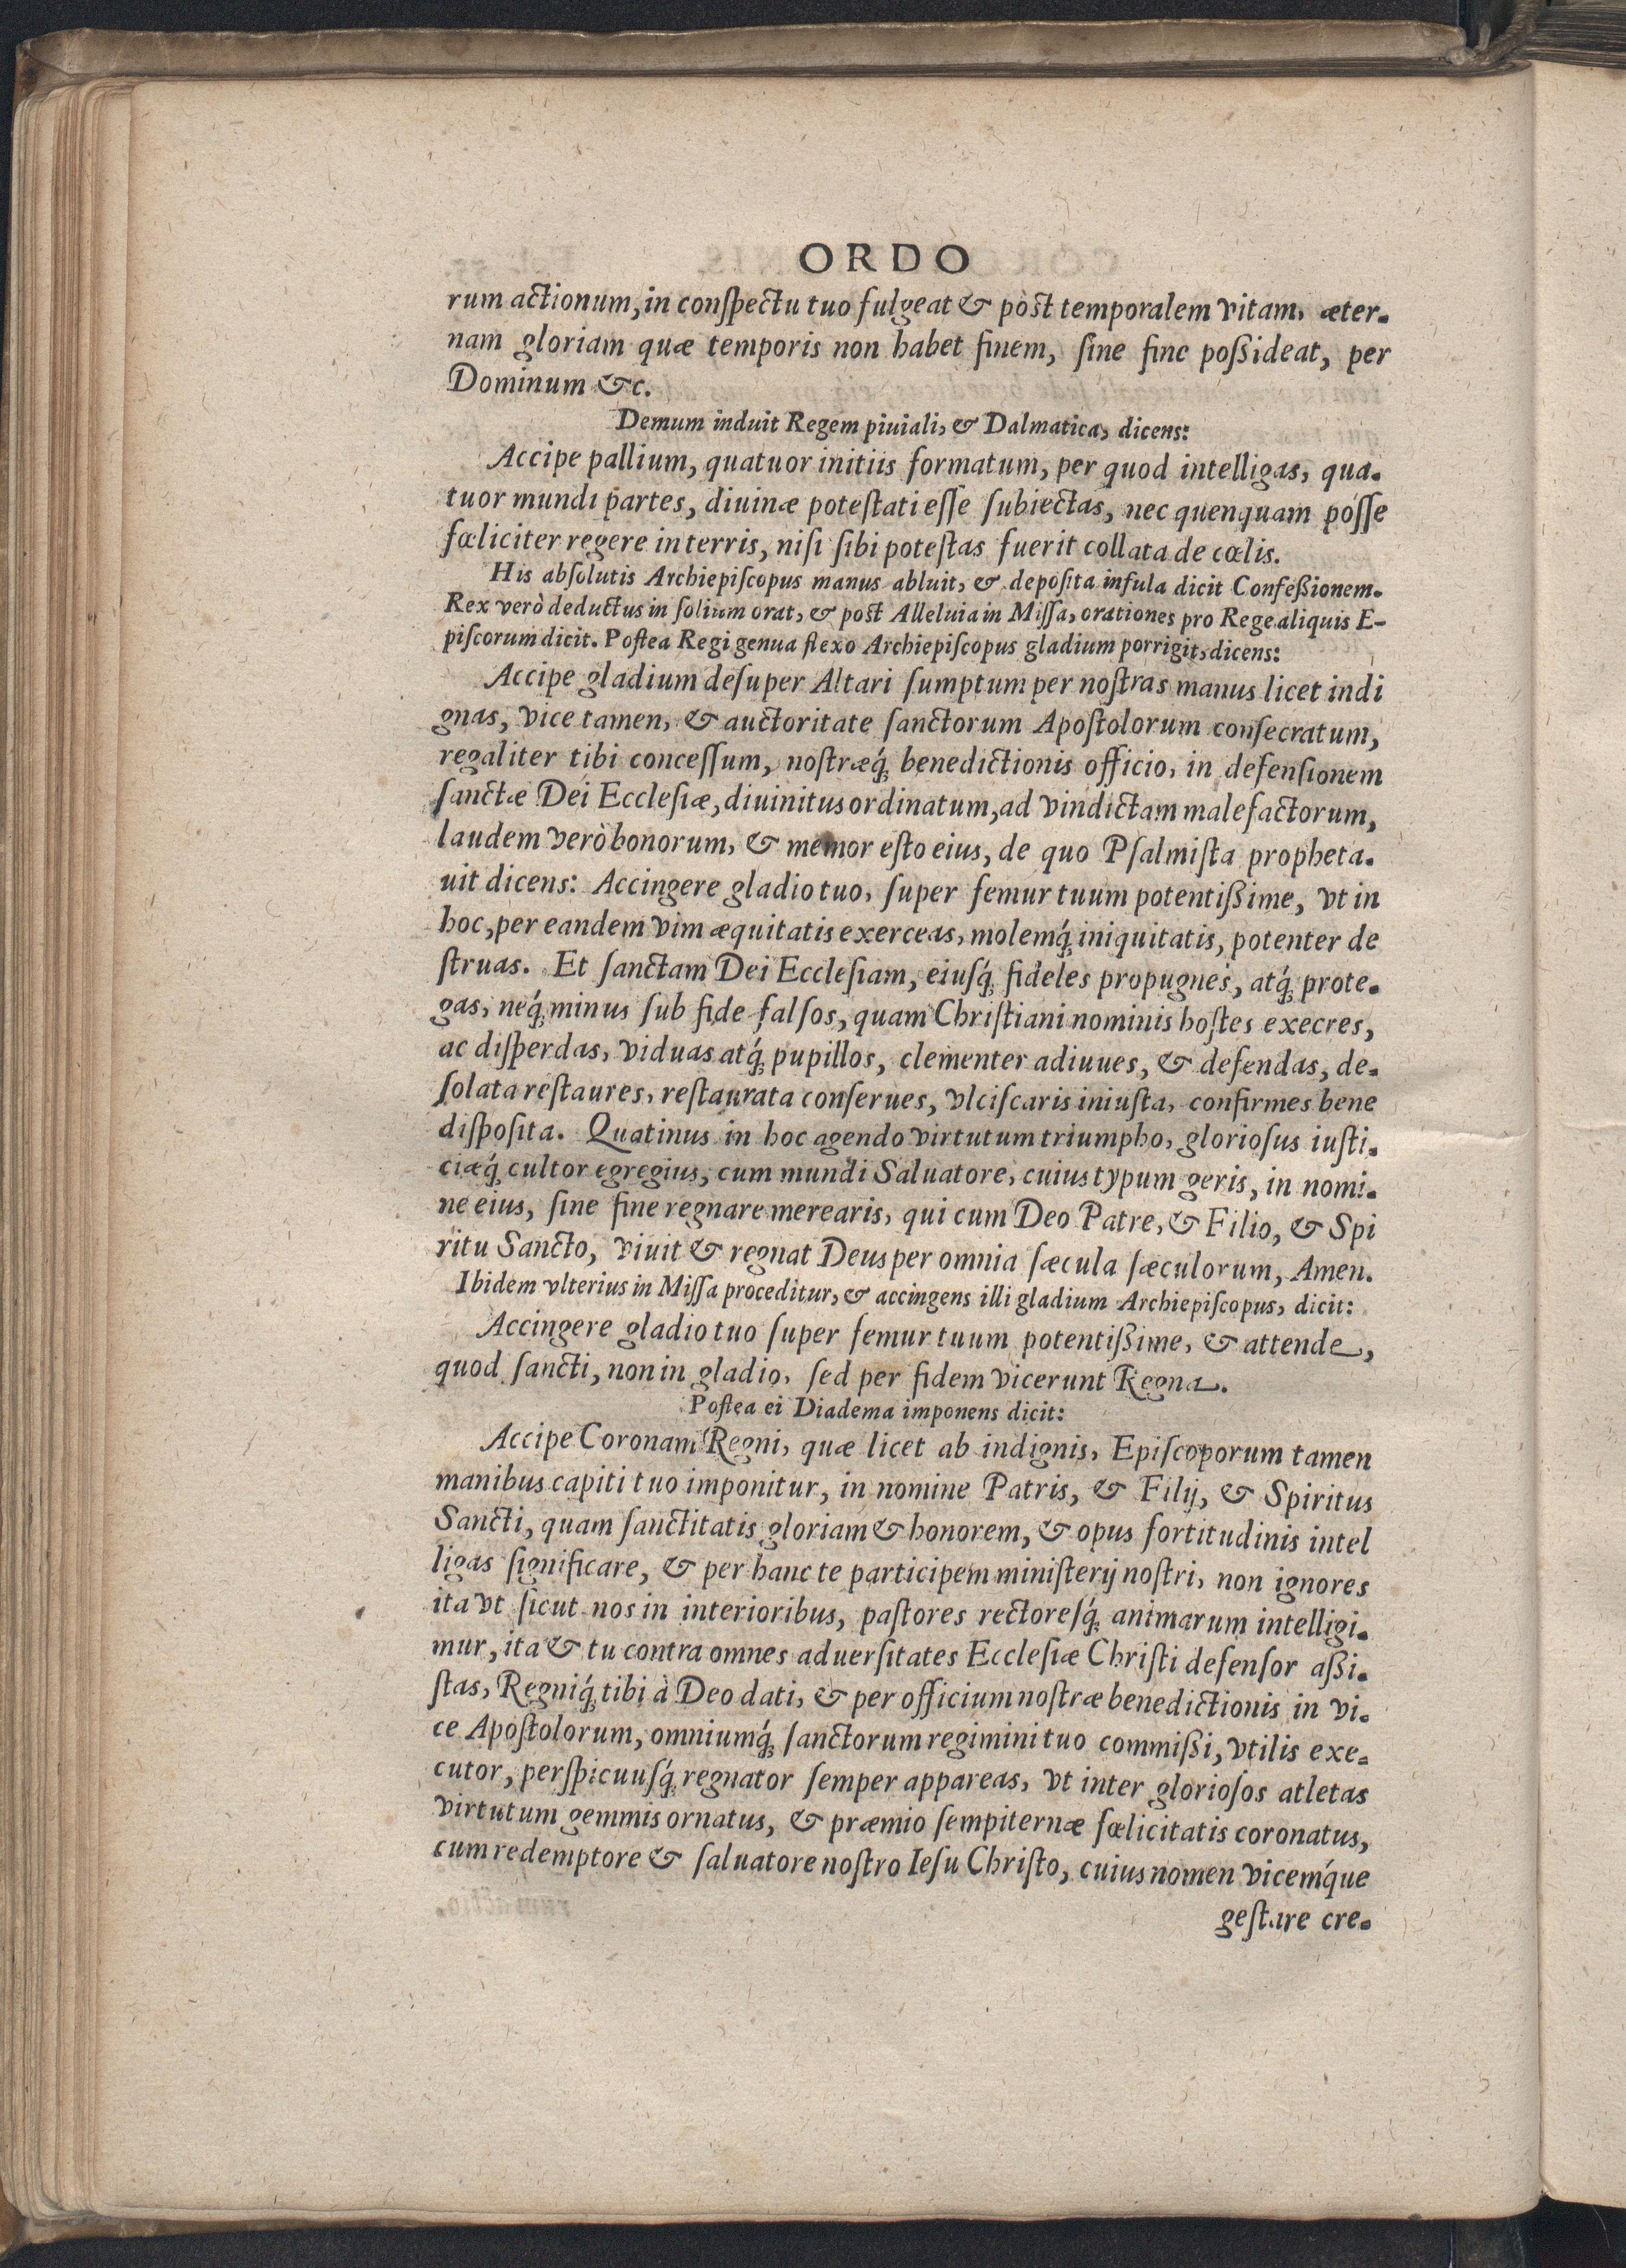 ORDO
rum actionum, in conſpectu tuo fulgeat & pòst temporalem vitam, æter-
nam gloriam quæ temporis non habet finem, ſine fine poßideat, per
Dominum &c.
Demum induit Regem piuiali, & Dalmatica, dicens:
Accipe pallium, quatuor initiis formatum, per quod intelligas, qua-
tuor mundi partes, diuinæ poteſtati eſſe ſubiectas, nec quenquam poſſe
fœliciter regere in terris, niſi ſibi poteſtas fuerit collata de cœlis.
His abſolutis Archiepiſcopus manus abluit, & depoſita infula dicit Confeßionem.
Rex verò deductus in ſolium orat, & post Alleluia in Miſſa, orationes pro Rege aliquis E-
piſcorum dicit. Poſtea Regi genua flexo Archiepiſcopus gladium porrigit, dicens:
Accipe gladium deſuper Altari ſumptum per noſtras manus licet indi
gnas, vice tamen, & auctoritate ſanctorum Apoſtolorum conſecratum,
regaliter tibi conceſſum, noſtræq́; benedictionis officio, in defenſionem
ſanctæ Dei Eccleſiæ, diuinitus ordinatum, ad vindictam malefactorum,
laudem verò bonorum, & memor eſto eius, de quo Pſalmiſta propheta-
uit dicens: Accingere gladio tuo, ſuper femur tuum potentißime, vt in
hoc, per eandem vim æquitatis exerceas, molemq́; iniquitatis, potenter de
ſtruas. Et ſanctam Dei Eccleſiam, eiuſq́; fideles propugnes, atq́; prote-
gas, neq́; minus ſub fide falſos, quam Chriſtiani nominis hoſtes execres,
ac diſperdas, viduas atq́; pupillos, clementer adiuues, & defendas, de-
ſolata reſtaures, reſtaurata conſerues, vlciſcaris iniuſta, confirmes bene
diſpoſita. Quatinus in hoc agendo virtutum triumpho, glorioſus iuſti-
ciæq́; cultor egregius, cum mundi Saluatore, cuius typum geris, in nomi-
ne eius, ſine fine regnare merearis, qui cum Deo Patre, & Filio, & Spi
ritu Sancto, viuit & regnat Deus per omnia ſæcula ſæculorum, Amen.
Ibidem vlterius in Miſſa proceditur, & accingens illi gladium Archiepiſcopus, dicit:
Accingere gladio tuo ſuper femur tuum potentißime, & attende,
quod ſancti, non in gladio, ſed per fidem vicerunt Regna.
Poſtea ei Diadema imponens dicit:
Accipe Coronam Regni, quæ licet ab indignis, Epiſcoporum tamen
manibus capiti tuo imponitur, in nomine Patris, & Filij, & Spiritus
Sancti, quam ſanctitatis gloriam & honorem, & opus fortitudinis intel
ligas ſignificare, & per hanc te participem miniſterij noſtri, non ignores
ita vt ſicut nos in interioribus, paſtores rectoreſq́; animarum intelligi-
mur, ita & tu contra omnes aduerſitates Eccleſiæ Chriſti defenſor aßi-
ſtas, Regniq́; tibi à Deo dati, & per officium noſtræ benedictionis in vi-
ce Apoſtolorum, omniumq́; ſanctorum regimini tuo commißi, vtilis exe-
cutor, perſpicuuſq́; regnator ſemper appareas, vt inter glorioſos atletas
virtutum gemmis ornatus, & præmio ſempiternæ fœlicitatis coronatus,
cum redemptore & ſaluatore noſtro Ieſu Chriſto, cuius nomen vicemq́ue
geſtare cre-